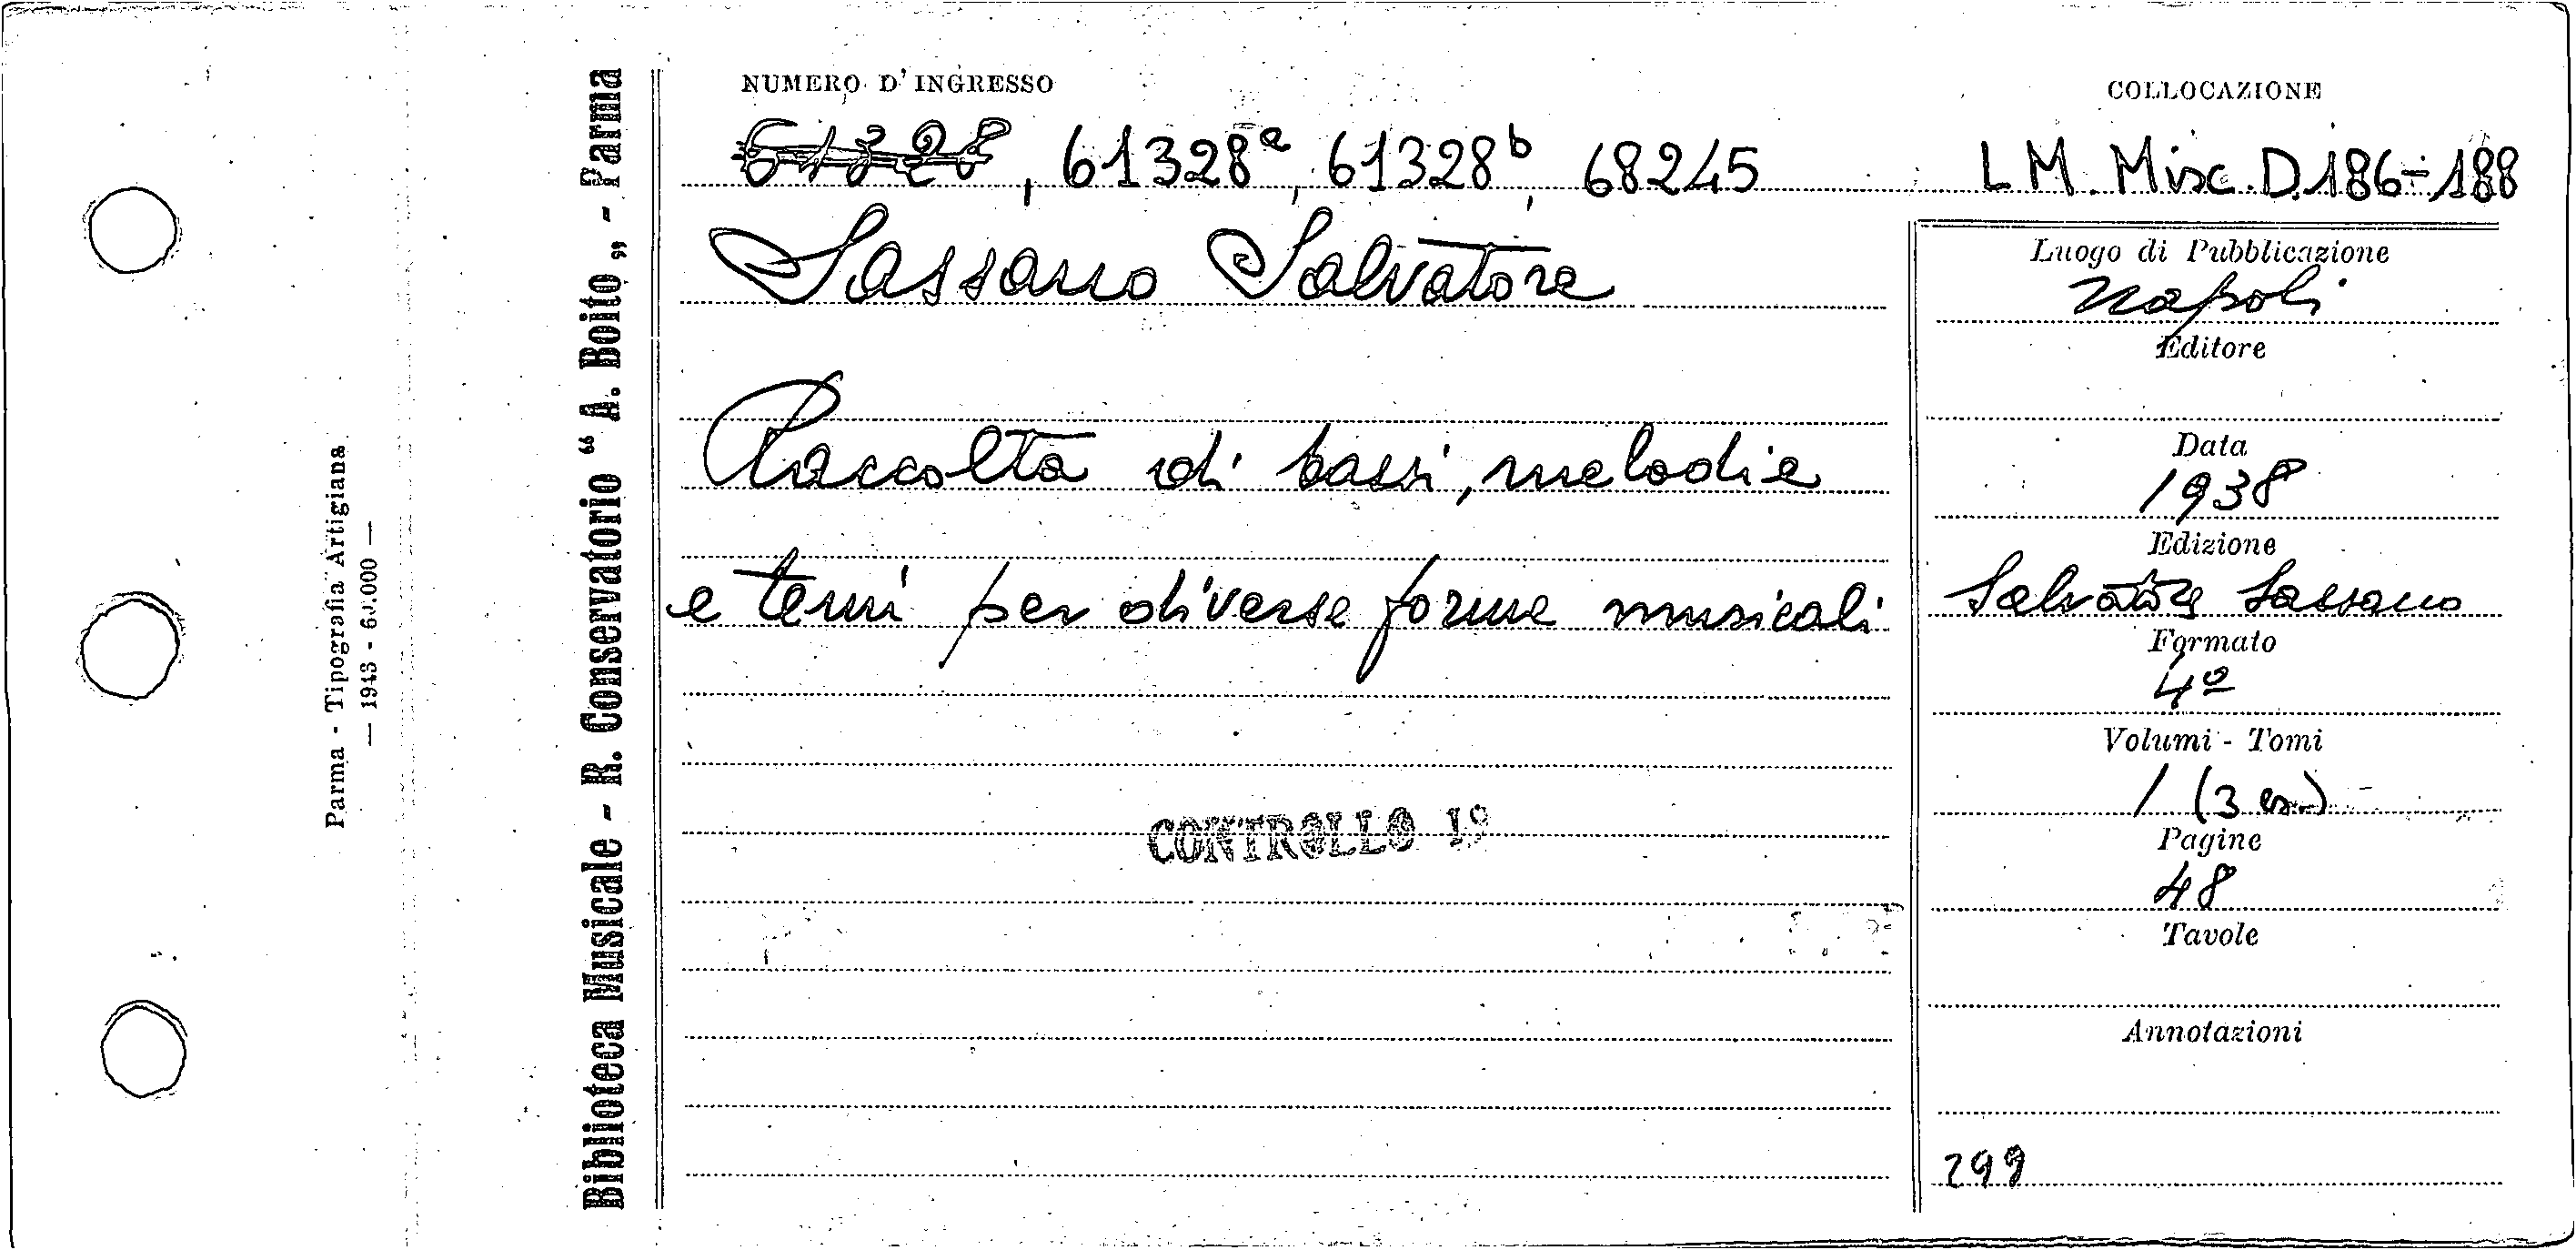 NUMERO D'INGRESSO
61328, 61328a, 61328b, 68245
COLLOCAZIONE
L M. Misc. D. 186-188
Sassano Salvatore
Raccolta di bassi, melodie
e temi per diverse forme musicali
CONTROLLO 1º
Luogo di Pubblicazione
Napoli
Editore
Data
1938
Edizione
Salvatore Sassano
Formato
4º
Volumi - Tomi
1 (3 es.)
Pagine
48
Tavole
Annotazioni
299
Biblioteca Musicale - R. Conservatorio “ A. Boito „ - Parma
Parma - Tipografia Artigiana
— 1943 - 60.000 —